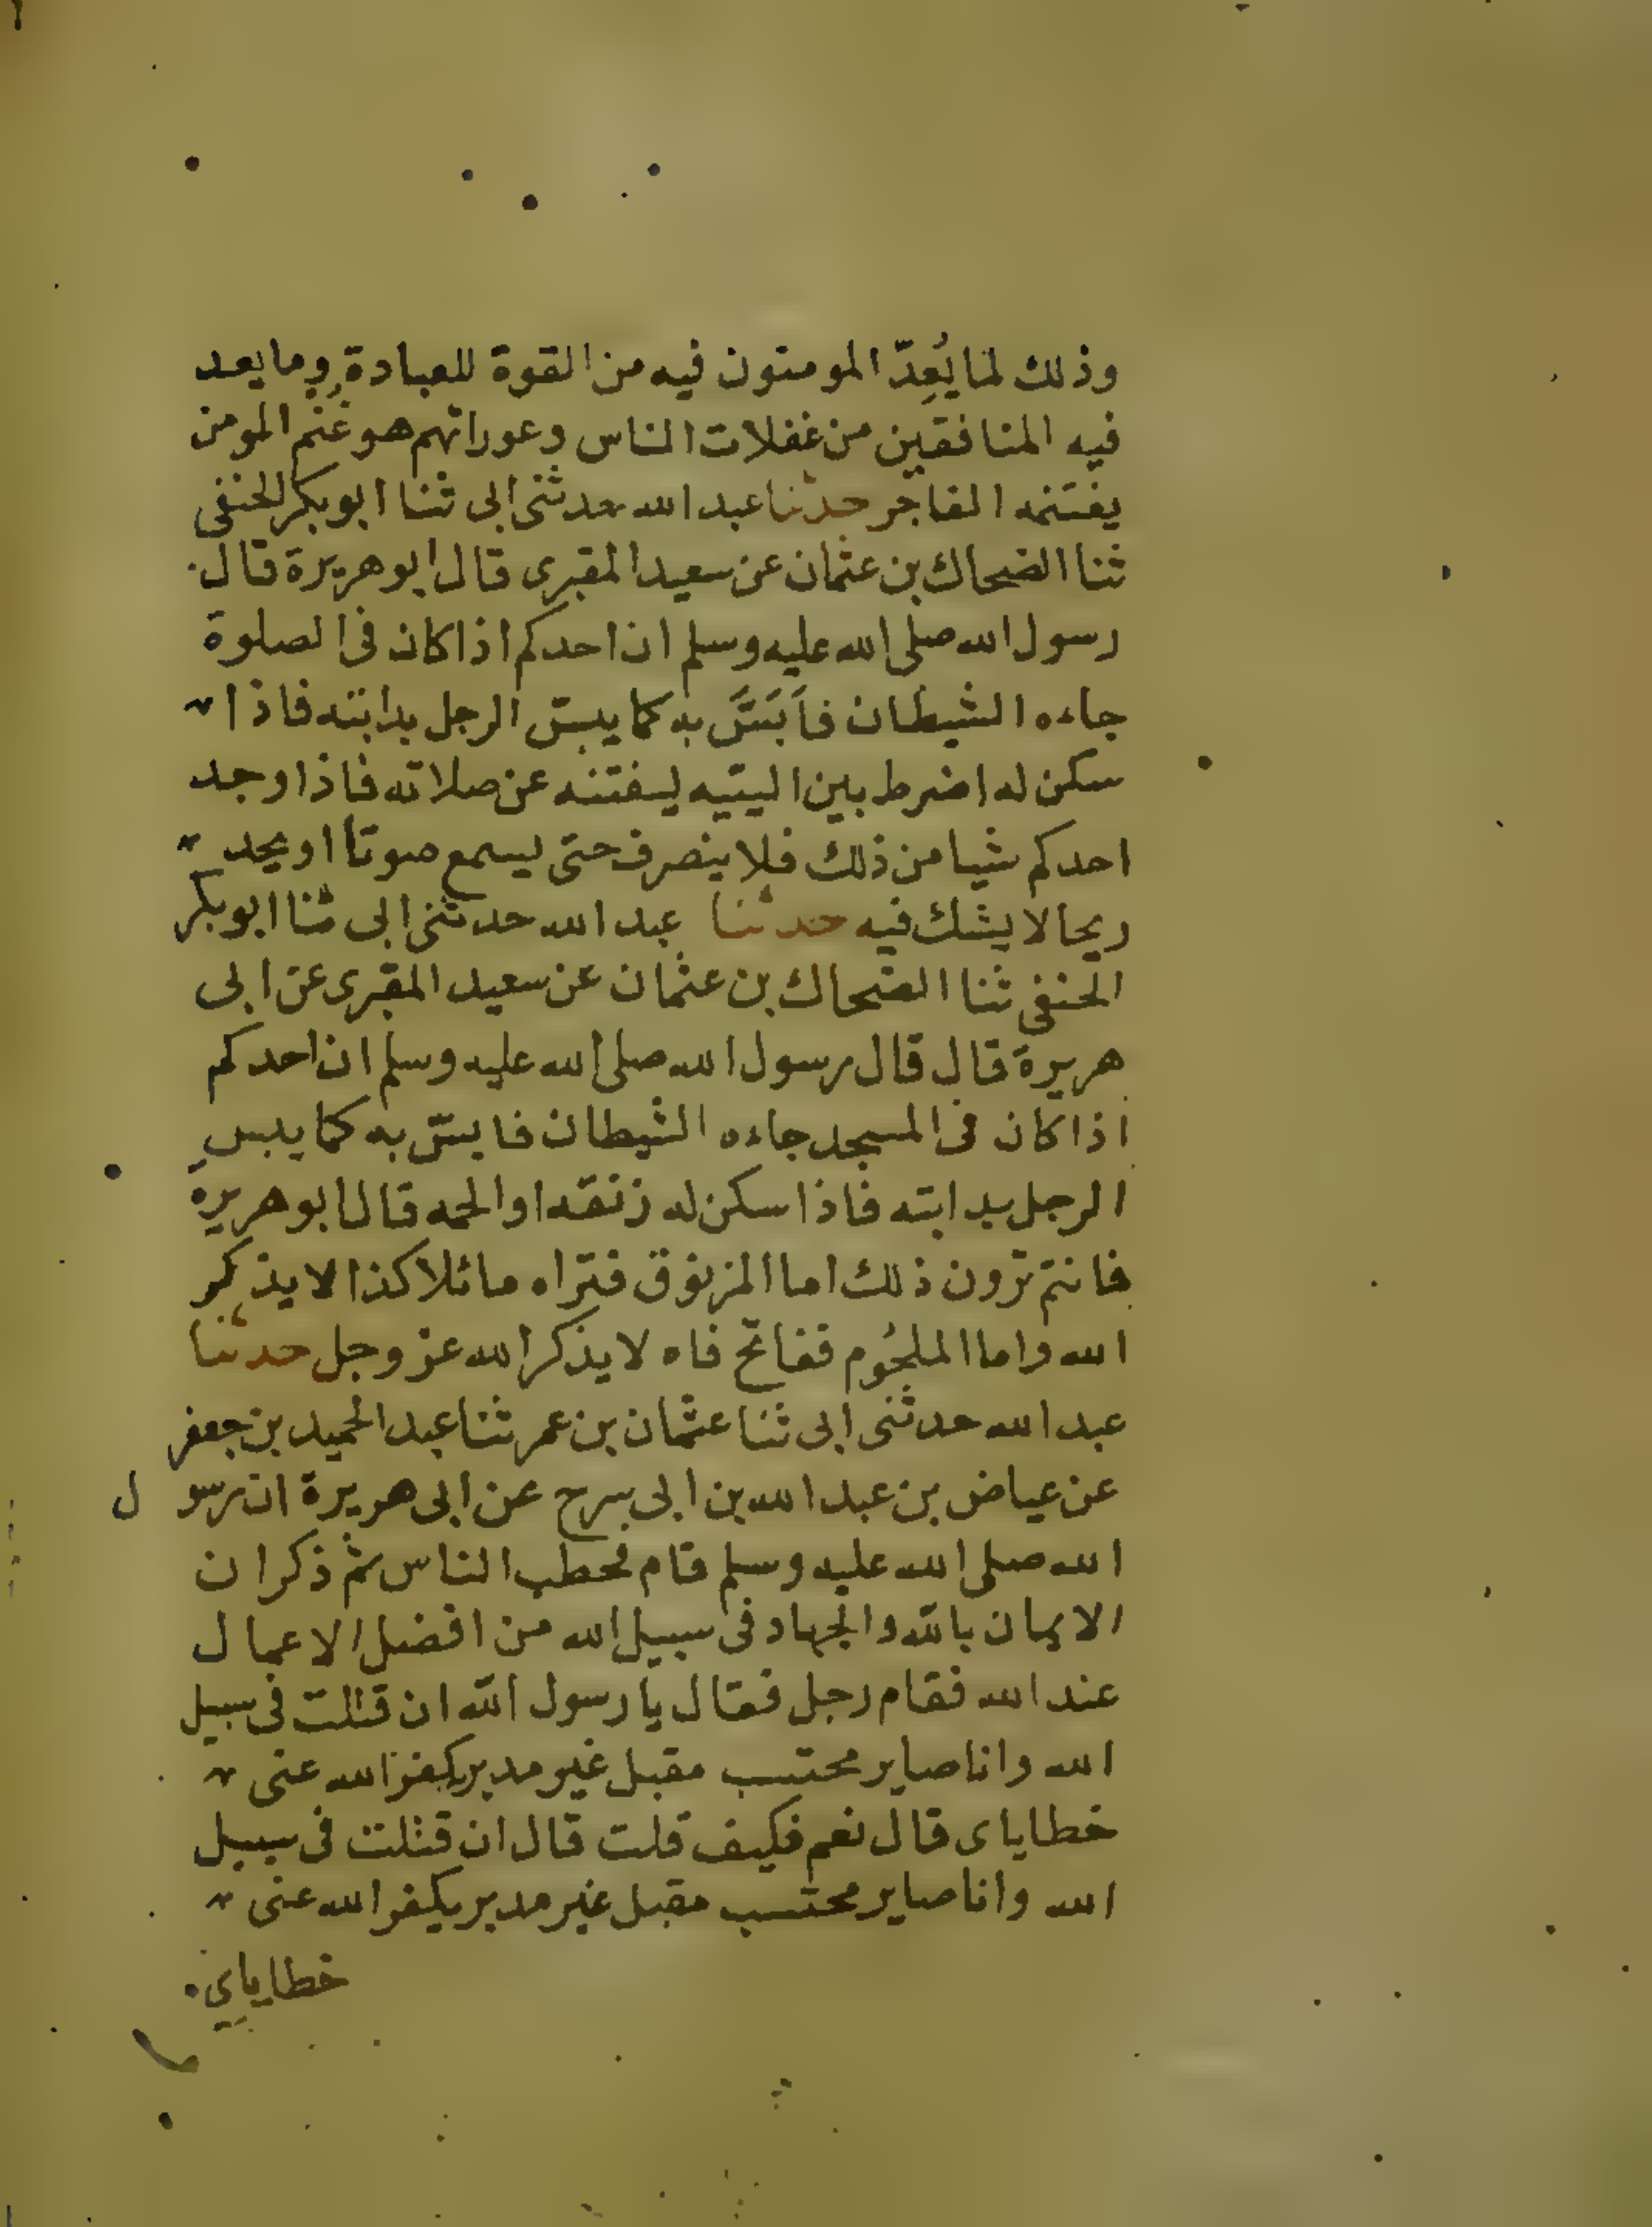 وذلك لما يُعِدّ المومنون فيه من القوة للعبادة وما يعد
فيه المنافقين من غفلات الناس وعوراتهم هو غُنْم المومن
يغتنمه الفاجر حدثنا عبد الله حدثنى ابى ثنا ابو بكر الحنفى
ثنا الضحاك بن عثمان عن سعيد المقبرى قال ابو هريرة قال
رسول الله صلى الله عليه وسلم ان احدكم اذا كان فى الصلوة
جاءه الشيطان فاَبَسَّ به كما يبس الرجل بدابته فاذا
سكن له اضرط بين اليتيه ليفتنه عن صلاته فاذا وجد
احدكم شيا من ذلك فلا ينصرف حتى يسمع صوتا او يجد
ريحا لا يشك فيه حدثنا عبد الله حدثنى ابى ثنا ابو بكر
الحنفى ثنا الضحاك بن عثمان عن سعيد المقبرى عن ابى
هريرة قال قال رسول الله صلى الله عليه وسلم ان احدكم
اذا كان فى المسجد جاءه الشيطان فابسّ به كما يبس
الرجل بدابته فاذا سكن له زنقه او الجمه قال ابو هريرة
فانتم ترون ذلك اما المزنوق فتراه مائلا كذا لا يذكر
الله واما الملجُوم ففاتح فاه لا يذكر الله عز وجل حدثنا
عبد الله حدثنى ابى ثنا عثمان بن عمر ثنا عبد الحميد بن جعفر
عن عياض بن عبد الله بن ابى سرح عن ابى هريرة ان رسول
الله صلى الله عليه وسلم قام فخطب الناس ثم ذكر ان
الايمان بالله والجهاد فى سبيل الله من افضل الاعمال
عند الله فقام رجل فقال يا رسول الله ان قتلت فى سبيل
الله وانا صابر محتسب مقبل غير مدبر يكفر الله عنى
خطاياى قال نعم فكيف قلت قال ان قتلت فى سبيل
الله وانا صابر محتسب مقبل غير مدبر يكفر الله عنى
خطاياي